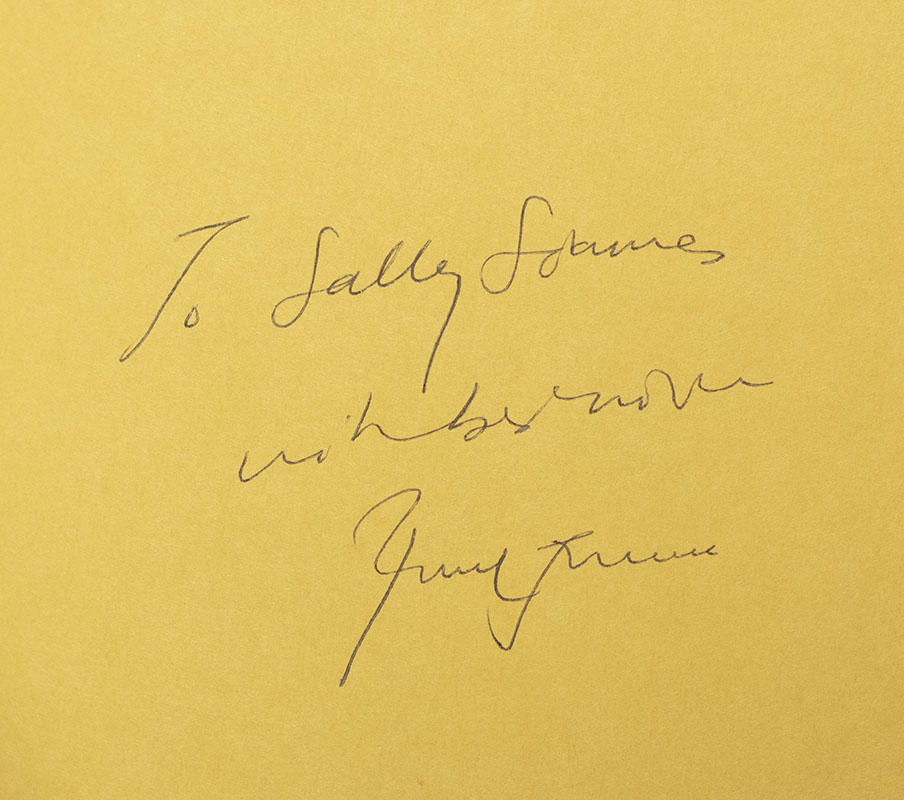 To Sally Soames
with best wishes